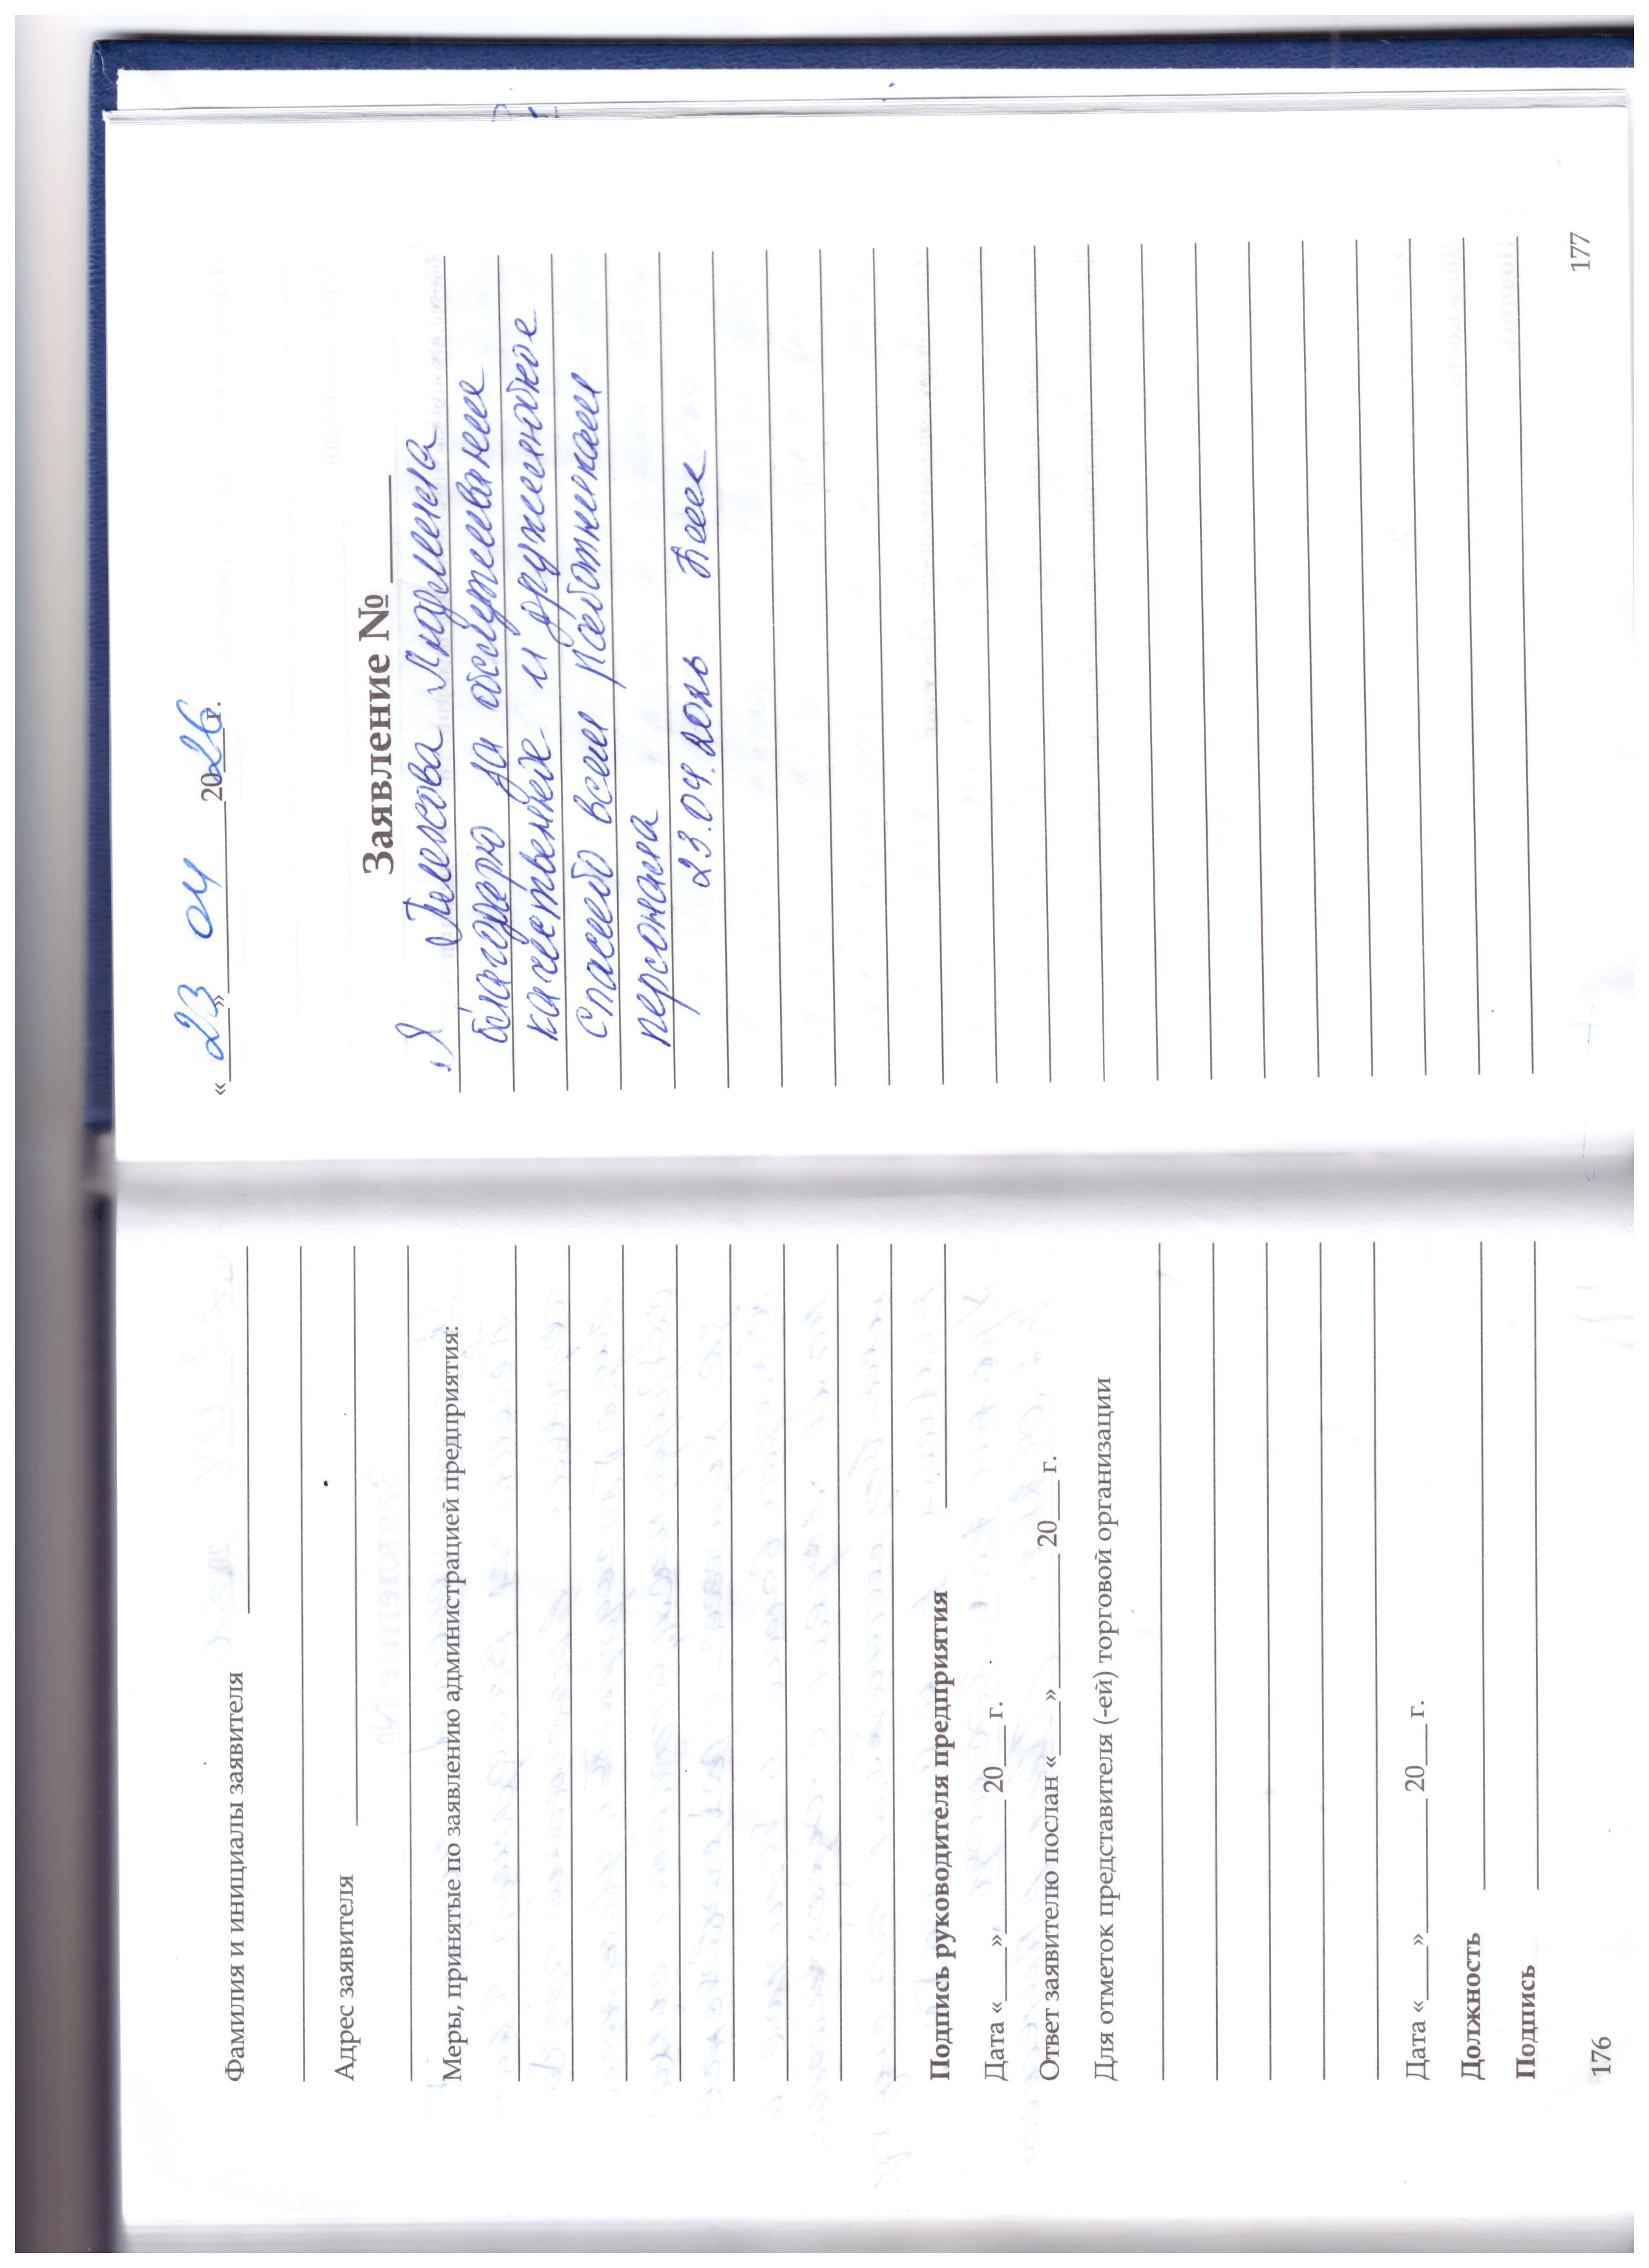 Фамилия и инициалы заявителя
Адрес заявителя
Меры, принятые по заявлению администрацией предприятия:
Подпись руководителя предприятия
Дата «___»________ 20___г.
Ответ заявителю послан «___»________ 20___г.
Для отметок представителя (-ей) торговой организации
Дата «___»________ 20___г.
Должность
Подпись
176
«23» 04 2026г.
Заявление №
Я Людмила
благодарю за обслуживание
качественное и дружелюбное
Спасибо всем работникам
персонала
23.04.
177